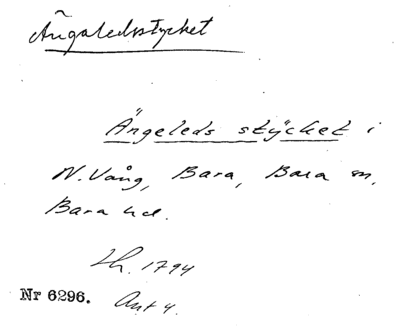 Ängaledsstycket
Ängeleds stÿcket i
N. Vång, Bara, Bara sn,
Bara hd.
Lh. 1794
Nr 6296. Akt 4.